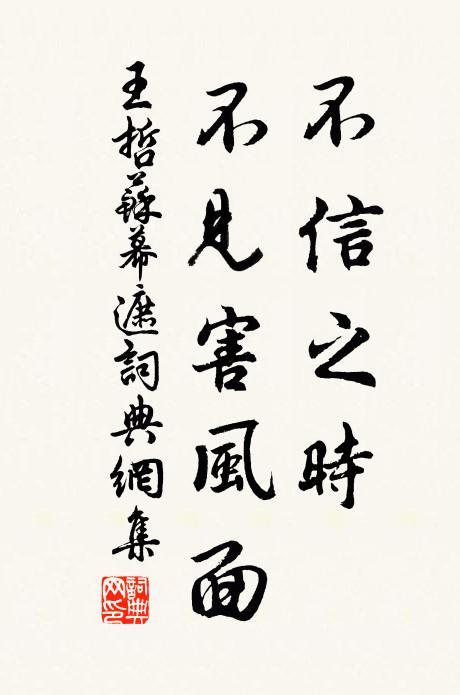 不信之時
不見害風面
王哲蘇幕遮詞典網集
詞典网印